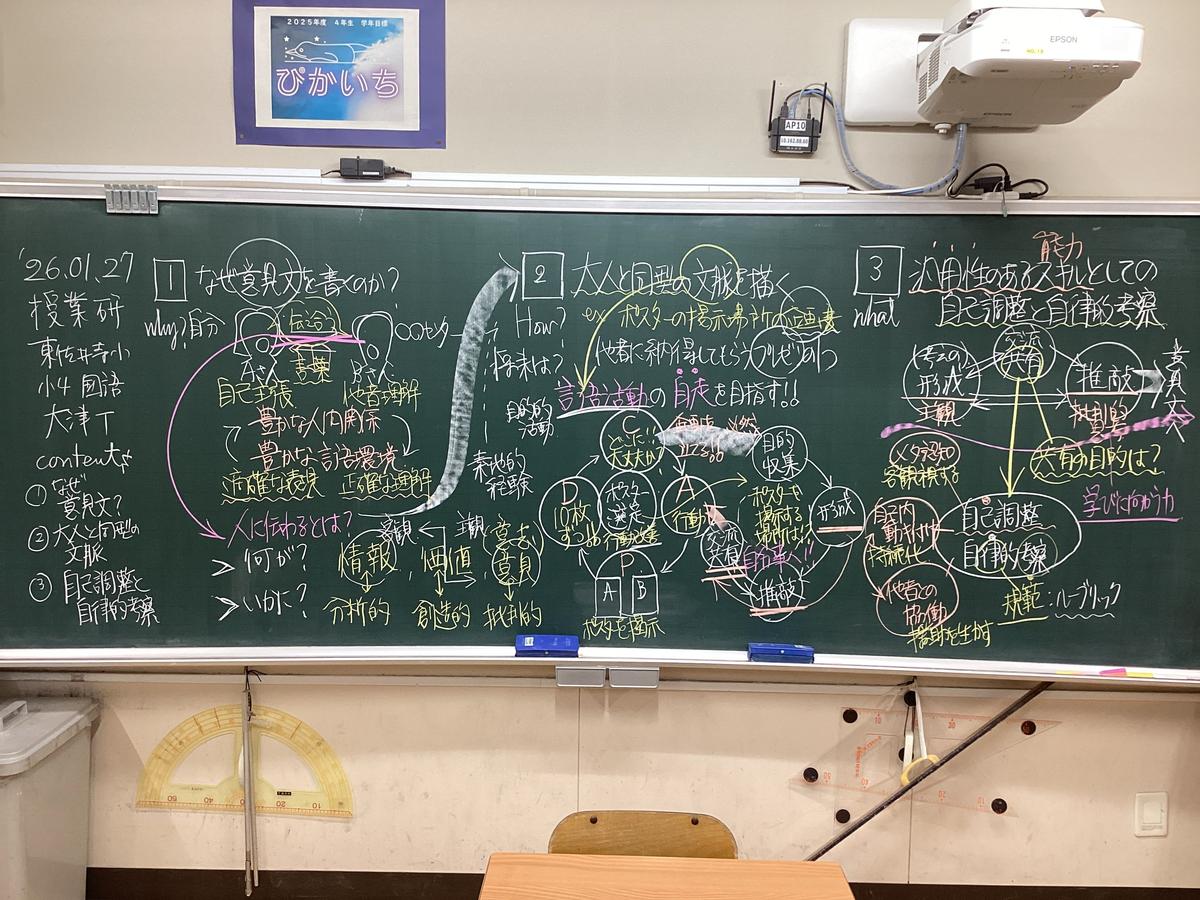 2025年度 4年生 学年目標
ぴかいち
EPSON
AP10
'26.01.27
授業研
小4 国語
大津T
contents
① なぜ
意見文?
② 大人と同型の
文脈
③ 自己調整と
自律的考察
1 なぜ意見文を書くのか?
why? 自分
伝合
言葉
Aさん
Bさん
自己主張 他者理解
豊かな人間関係
豊かな言語環境
正確な表現 正確な理解
人に伝わるとは?
> 何が?
> いかに?
客観 ← 主観
情報 価値 意見
分析的 創造的 批判的
2 大人と同型の文脈を描く
How?
ex ポスターの掲示場所の企画書
将来は?
他者に納得してもらうプレゼン
言語活動の自走を目指す!!
目的的
活動
素地的
経験
C
D
10枚
ずつ
ポスター
選定
A
行動
P
A B
ポスターを掲示
目的
収集
ポスターを
掲示する
場所は?
形成
交流
共有
推敲
3 汎用性のあるスキルとしての
能力
自己調整と自律的考察
what
考えの
形成
主観
交流
共有
推敲
批判的
メタ認知
客観視する
共有の目的は?
学びに向かう力
自己内
動機付け
持続化
自己調整
自律的考察
他者との
協働
規範:ルーブリック